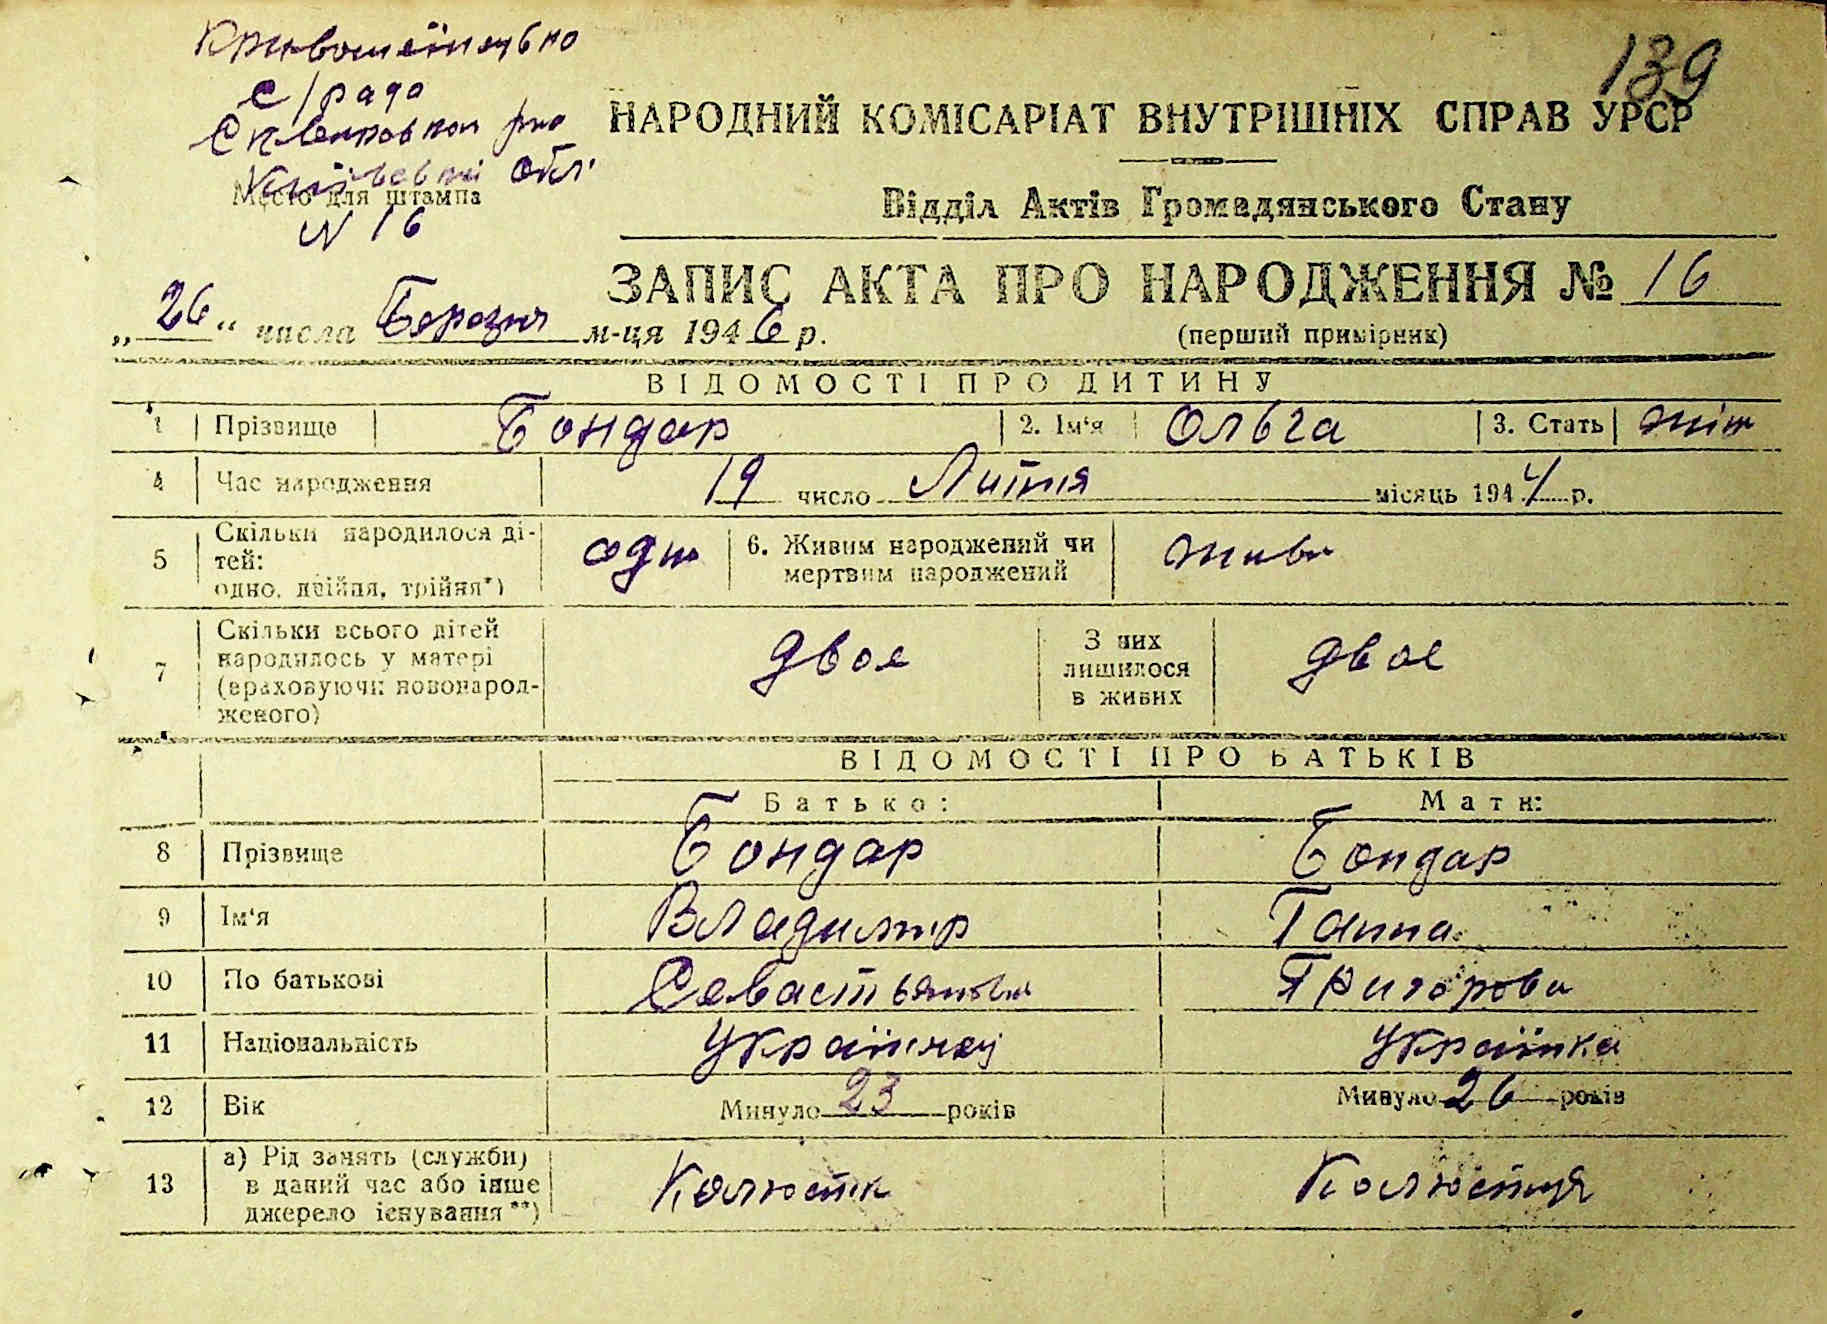 139
с/рада
обл.
Место для штампа
N 16
НАРОДНИЙ КОМІСАРІАТ ВНУТРІШНІХ СПРАВ УРСР
Відділ Актів Громадянського Стану
ЗАПИС АКТА ПРО НАРОДЖЕННЯ № 16
(перший примірник)
„26“ числа Березня м-ця 1946 р.
ВІДОМОСТІ ПРО ДИТИНУ
1 Прізвище Бондар 2. Ім'я Ольга 3. Стать жін
4 Час народження 19 число місяць 1944 р.
5 Скільки народилося ді-
тей:
одно, двійня, трійня*) одн 6. Живим народжений чи
мертвим народжений
7 Скільки всього дітей
народилось у матері
(враховуючи новонарод-
женого) двоє З них
лишилося
в живих двоє
ВІДОМОСТІ ПРО БАТЬКІВ
Батько: Мати:
8 Прізвище Бондар Бондар
9 Ім'я Владимир Ганна
10 По батькові Григоровн
11 Національність Українец Українка
12 Вік Минуло 23 років Минуло 26 років
13 а) Рід занять (служби)
в даний час або інше
джерело існування**)